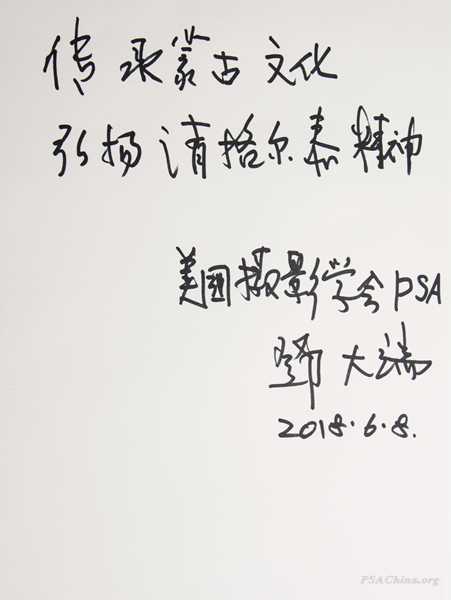 传承蒙古文化
弘扬清格尔泰精神
美国摄影学会PSA
邓大瑞
2018.6.8.
PSAChina.org